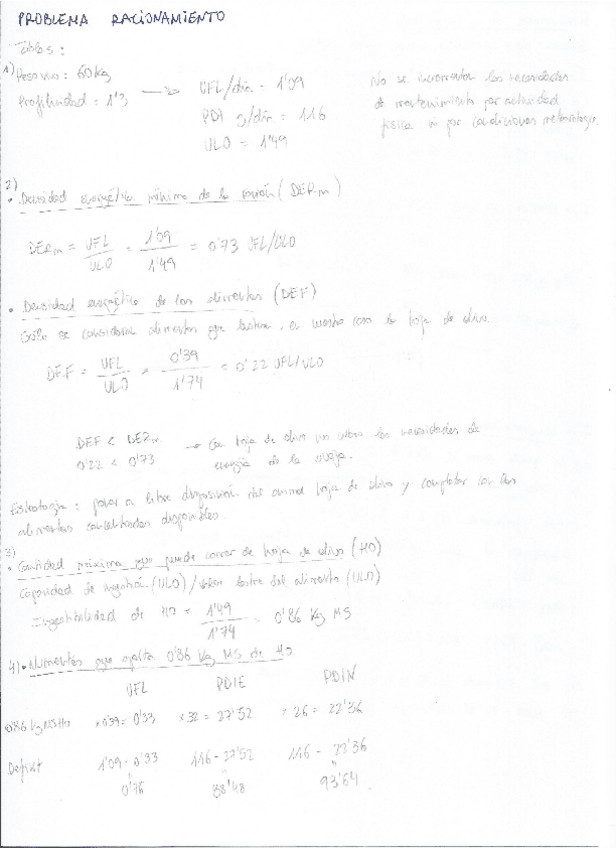 PROBLEMA RACIONAMIENTO
Tablas:
1) Peso vivo: 60 kg
Prolificidad = 1'3 → UFL/día = 1'09
PDI g/día = 116
ULO = 1'49
No se incrementan las necesidades
de mantenimiento por actividad
física ni por condiciones
2)
• Densidad energética mínima de la ración (DERm)
DERm = UFL/ULO = 1'09/1'49 = 0'73 UFL/ULO
• Densidad energética de los alimentos (DEF)
Sólo se consideran alimentos que lastran, en nuestro caso la hoja de olivo.
DEF = UFL/ULO = 0'39/1'74 = 0'22 UFL/ULO
DEF < DERm → Con hoja de olivo no cubro las necesidades de
0'22 < 0'73 energía de la oveja.
Estrategia: poner a libre disposición del animal hoja de olivo y completar con los
alimentos concentrados disponibles.
3)
• Cantidad máxima que puede comer de hoja de olivo (HO)
Capacidad de ingestión (ULO) / valor lastre del alimento (ULO)
Ingestibilidad de HO = 1'49/1'74 = 0'86 kg MS
4) • Nutrientes que aporta 0'86 kg MS de HO
UFL PDIE PDIN
0'86 kg MS HO ×0'39 = 0'33 ×32 = 27'52 × 26 = 22'36
Deficit 1'09 - 0'33 116 - 27'52 116 - 22'36
= = =
0'76 88'48 93'64